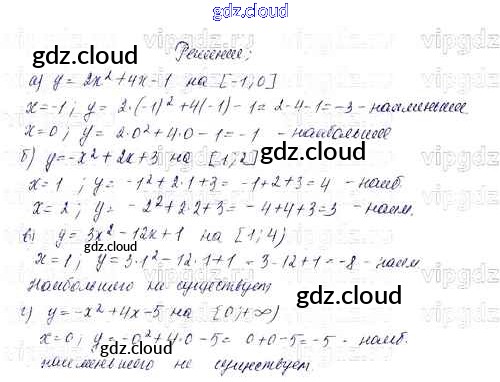 gdz.cloud
Решение:
а) y = 2x² + 4x - 1 на [-1; 0]
x = -1; y = 2·(-1)² + 4(-1) - 1 = 2 - 4 - 1 = -3 - наименьшее
x = 0; y = 2·0² + 4·0 - 1 = -1 - наибольшее
б) y = -x² + 2x + 3 на [1; 2]
x = 1; y = -1² + 2·1 + 3 = -1 + 2 + 3 = 4 - наиб.
x = 2; y = -2² + 2·2 + 3 = -4 + 4 + 3 = 3 - наим.
в) y = 3x² - 12x + 1 на [1; 4)
x = 1; y = 3·1² - 12·1 + 1 = 3 - 12 + 1 = -8 - наим
Наибольшего не существует
г) y = -x² + 4x - 5 на [0; +∞)
x = 0; y = -0² + 4·0 - 5 = 0 + 0 - 5 = -5 - наиб.
наименьшего не существует.
gdz.cloud
gdz.cloud
gdz.cloud
gdz.cloud
gdz.cloud
gdz.cloud